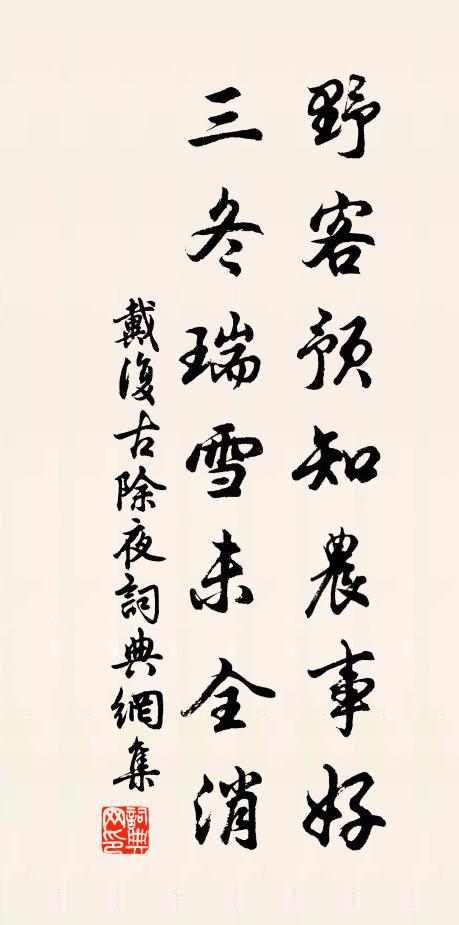 野客預知農事好
三冬瑞雪未全消
戴復古除夜詞典網集
詞典網印